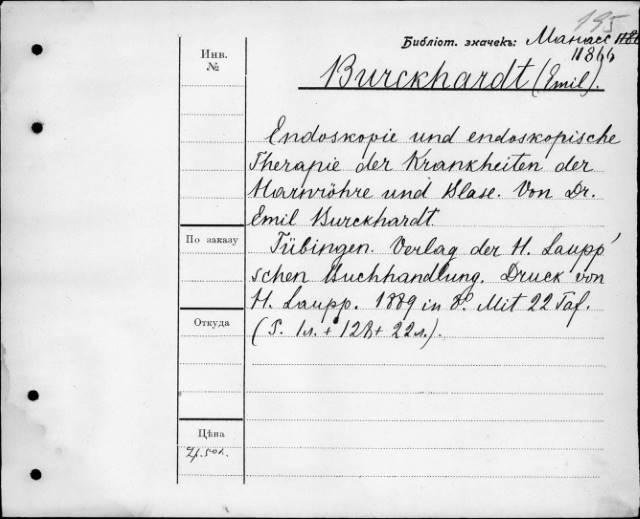 195
Библіот. значекъ: Манасс
11866
Инв.
№
Burckhardt (Emil).
Endoskopie und endoskopische
Therapie der Krankheiten der
Harnröhre und Blase. Von Dr.
Emil Burckhardt.
По заказу
Tübingen. Verlag der H. Laupp'
schen Buchhandlung. Druck von
H. Laupp. 1889 in 8° Mit 22 Taf.
Откуда
(S. 1л. + 128 + 22л.).
Цѣна